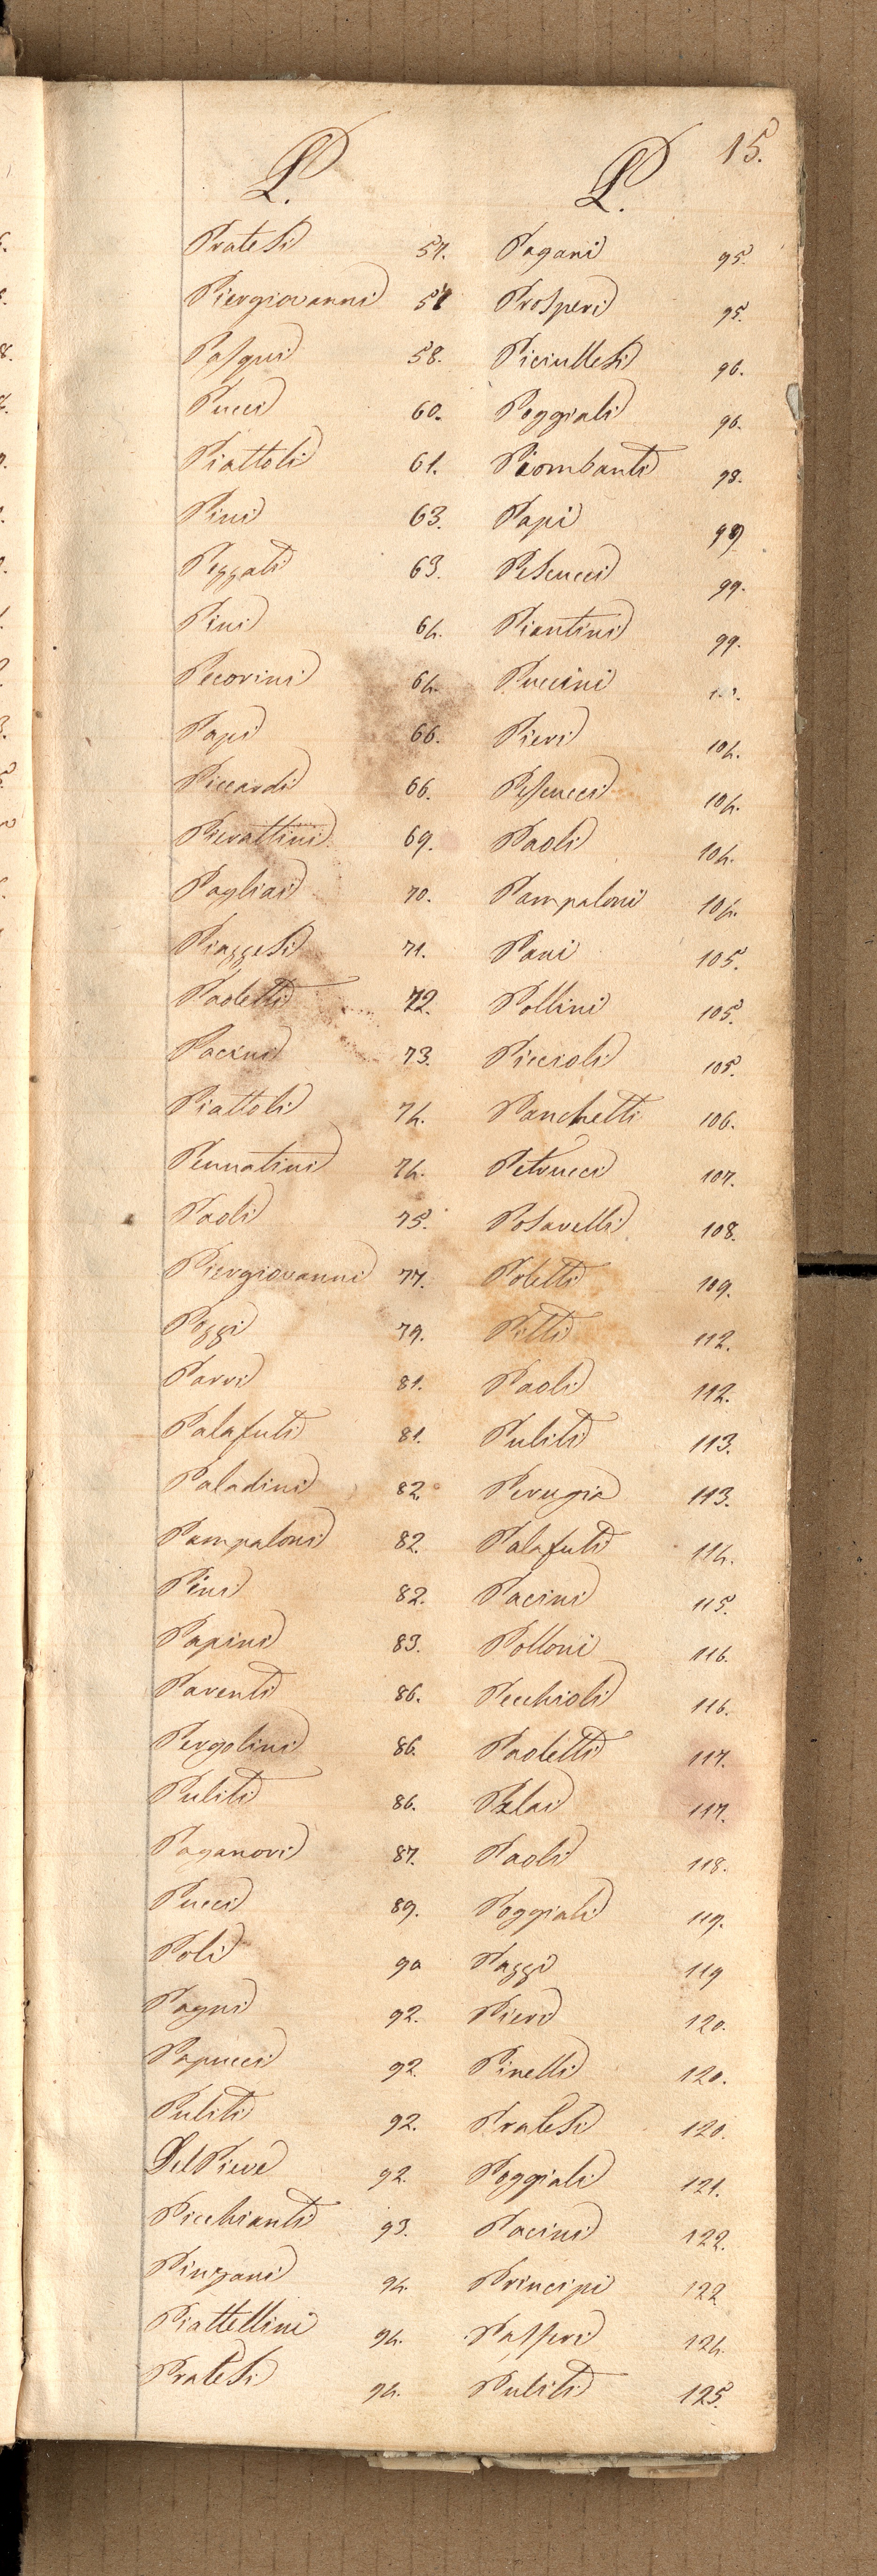 15.
P.
Pratesi 57.
Piergiovanni 57
Pasqui 58.
Pucci 60.
Piattoli 61.
Pini 63.
Pezzati 63.
Pini 64.
Pecorini 64.
Papi 66.
Piccardi 66.
Pierattini 69.
Pagliai 70.
Piazzesi 71.
Paoletti 72.
Pacini 73.
Piattoli 74.
Pennatini 74.
Paoli 75.
Piergiovanni 77.
Pozzi 79.
Parri 81.
Palafuti 81.
Paladini 82.
Pampaloni 82.
Pini 82.
Papini 83.
Parenti 86.
Pergolini 86.
Puliti 86.
Paganori 87.
Pucci 89.
Poli 90
Pagni 92.
Papucci 92.
Puliti 92.
Del Pieve 92.
Picchianti 93.
Pinzani 94.
Piattellini 94.
Pratesi 94.
P.
Pagani 95.
Prosperi 95.
Piciullesi 96.
Poggiali 96.
Piombanti 98.
Papi 99
Pescucci 99.
Piantini 99.
Puccini
Pieri 104.
Pescucci 104.
Paoli 104.
Pampaloni 104.
Pani 105.
Pollini 105.
Piccioli 105.
Panchetti 106.
Petrucci 107.
Posarelli 108.
Poletti 109.
Pitti 112.
Paoli 112.
Puliti 113.
Perugia 113.
Palafuti 114.
Pacini 115.
Polloni 116.
Pecchioli 116.
Paoletti 117.
Pelai 117.
Paoli 118.
Poggiali 119.
Pazzi 119
Pieri 120.
Pinelli 120.
Pratesi 120.
Poggiali 121.
Pacini 122.
Principi 122
Passeri 124.
Puliti 125.